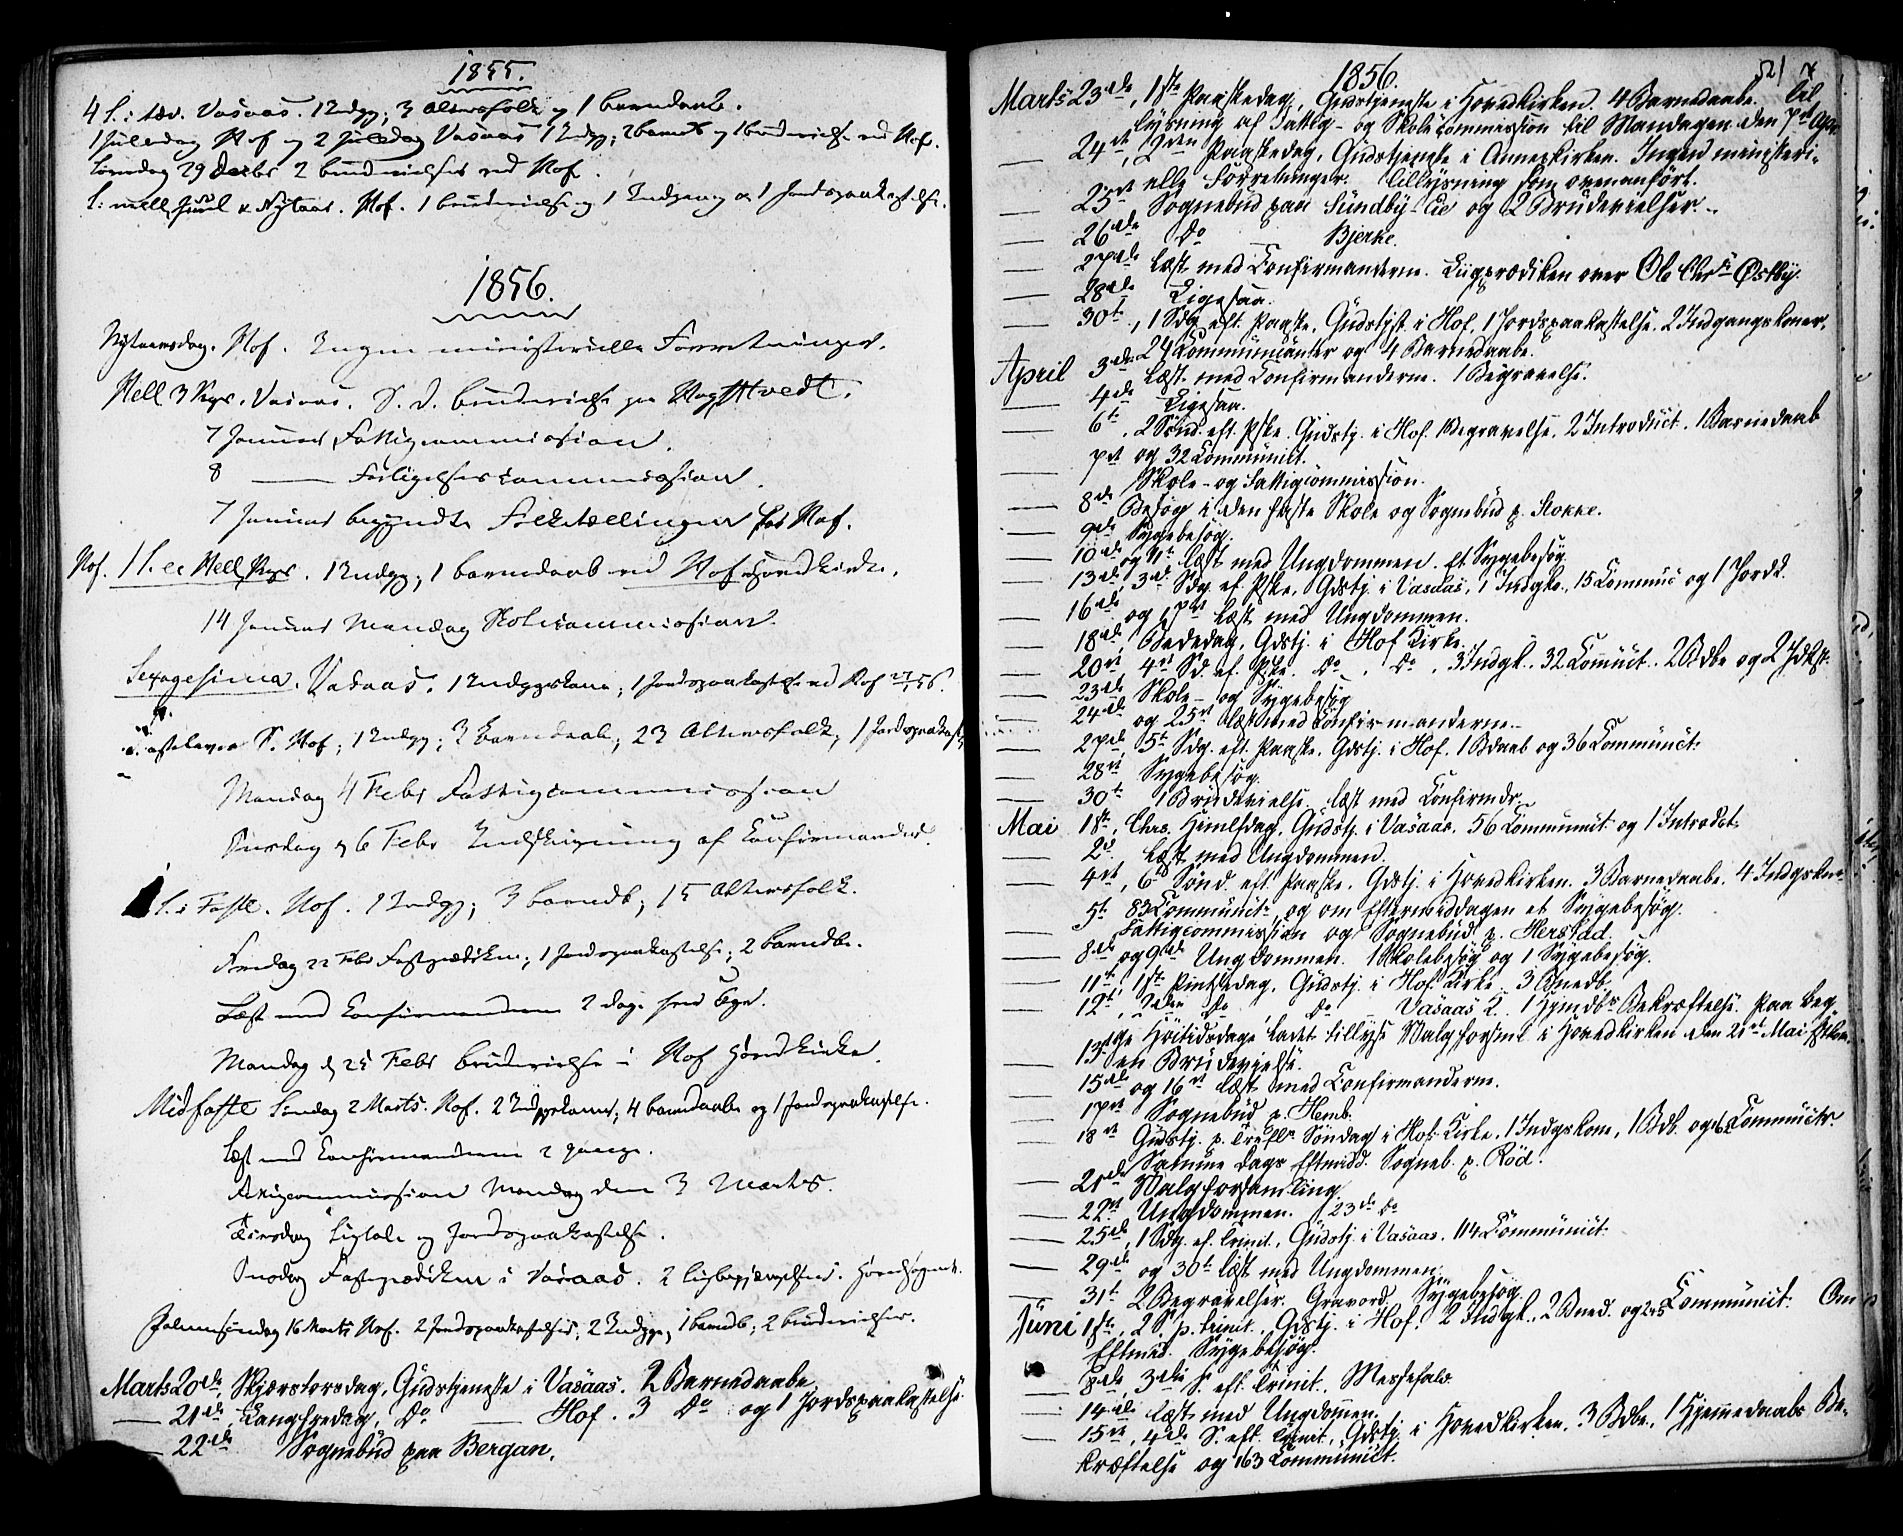 1855.
4 S. i Adv. Vasaas. 1 Indgg; 3 Altersfolk og 1 Barnedaab.
1 Juledag Hof og 2 Juledag Vasaas 1 Indgg; 2 barnd og 1 brudevielse ved Hof.
Løverdag 29 Decbr 2 brudevielser ved Hof.
S. mell. Juul & Nytaar. Hof. 1 brudevielse og 1 Indgang og 1 Jordspaakastelse.
1856.
Nytaarsdag. Hof. Ingen ministerielle Forretninger.
Hell 3 Kgr. Vasaas. S. D. brudevielse paa
7 Januar Fattigcommission.
8 — Forligelsescommission.
7 Januar begyndte Folketællingen for Hof.
Hof. 1 S. e. Hell. Kgr. 1 Indgg; 1 barnedaab ved Hof Hovedkirke.
14 Januar Mandag Skolecommission.
Sexagesima. Vasaas. 1 Indggskone; 1 Jordspaakastelse ved Hof 27/1 56.
Fastelavns S. Hof; 1 Indgg; 3 barnedaab; 23 Altersfolk; 1 Jordspaakast
Mandag 4 Febr Fattigcommission
Onsdag d 6 Febr Indskrivning af Confirmander.
1 S. i Faste. Hof. 1 Indgg; 3 barndb; 15 Altersfolk.
Fredag 22 Febr Fastepræken; 1 Jordspaakastelse; 2 barndb.
Læst med Confirmanderne 2 dage hver Uge.
Mandag d 25 Febr brudevielse i Hof Hovedkirke.
Midfaste Søndag 2 Marts. Hof. 2 Indggskoner; 4 barnedaabe og 1 Jordspaakastelse.
Læst med Confirmanderne 2 gange.
Fattigcommission Mandag den 3 Marts.
Tiirsdag Ligtale og Jordspaakastelse.
Onsdag Fasteprædiken i Vasaas. 2 Hovedsognet.
Palmesøndag 16 Marts Hof. 2 Jordspaakastelser; 2 Indgge; 1 barndb; 2 brudevielser.
Marts 20de, Skjærstorsdag, Gudstjeneste i Vasaas. 2 Barnedaabe
— 21de, Langfredag, Do — Hof. 3 Do og 1 Jordspaakastelse
— 22de Sognebud paa Bergan.
1856.
521
Marts 23de, 1ste Paaskedag, Gudstjeneste i Hovedkirken. 4 Barnedaabe. Til
lysning af Fattig- og Skolecommission til Mandagen den 7de Apr.
— 24de, 2den Paaskedag, Gudstjeneste i Annexkirken. Ingen ministeri-
elle Forretninger. Tillysning som ovenanført.
— 25de Sognebud paa Sundby-Eie og 2 Brudevielser.
— 26de Do Bjerke.
— 27de Læst med Confirmanderne. Liigprædiken over Ole Chrs Østby.
— 28de Ligesaa.
— 30te, 1 Sdg eft. Paaske, Gudstjst. i Hof. 1 Jordspaakastelse. 2 Indgangskoner,
24 Communicanter og 4 Barnedaabe.
April 3de Læst med Confirmanderne. 1 Begravelse.
— 4de Ligesaa.
— 6te, 2 Sønd. eft. Pske. Gudstj. i Hof. 1 Begravelse, 2 Introduct. 1 Barnedaab
og 32 Communict.
— 7de Skole- og Fattigcommission.
— 8de Besøg i den faste Skole og Sognebud p. Stokke.
— 9de Sygebesøg.
— 10de og 11te Læst med Ungdommen. Et Sygebesøg
— 13de, 3de Sdg. ef. Pske, Gdstj. i Vasaas, 1 Indgke., 15 Commuc og 1 Jordk.
— 16de og 17de Læst med Ungdommen.
— 18de, Bededag, Gdstj. i Hof Kirke.
— 20de, 4de Sd. ef. Pske. Do, Do, 3 Indgk. 32 Comuict. 2 Bdbe og 2 Jdkst.
— 23de Skole- og Sygebesøg
— 24de og 25de Læst med Confirmanderne.
— 27de, 5te Sdg. eft. Paaske. Gdstj. i Hof. 1 Bdaab og 36 Communict.
— 28de Sygebesøg.
— 30te 1 Brudevielse. Læst med Confirmdr.
Mai 1ste, Chrs. Himlfdag, Gudstj. i Vasaas, 56 Communict. og 1 Introdct.
— 2d. Læst med Ungdommen.
— 4de, 6te Sønd. eft. Paaske. Gdstj. i Hovedkirken. 3 Barnedaabe. 4 Indgsknr
83 Communict., og om Eftermiddagen et Sygebesøg.
— 5te Fattigcommission og Sognebud p. Herstad.
— 8de og 9de Ungdommen. 1 Skolebesøg og 1 Sygebesøg.
— 11te, 1ste Pintsedag, Gudstj. i Hof Kirke. 3 Bnedb.
— 12te, 2den Do Do Vasaas K. 1 Hjmdbs Bekræftelse. Paa beg-
ge Høitidsdage ladet tillyse Valgforsml. i Hovedkirken den 21de Mai
— 13de en Brudevielse.
— 15de og 16de Læst med Confirmanderne.
— 17de Sognebud p. Hemb.
— 18de Gudstj. p. Trefl. Søndag i Hof Kirke. 1 Indgskone, 1 Bdb. og Communictr.
Samme Dags Eftmidd. Sogneb. p. Rød.
— 21de Valgforsamling
— 22de Ungdommen. 23de Do
— 25de, 1 Sdg. ef. Trinit., Gudstj. i Vasaas. 114 Communict.
— 29de og 30te Læst med Ungdommen.
— 31te 2 Begravelser. Gravord. Sygebesøg.
Juni 1ste, 2 S. p. Trinit. Gdstj. i Hof. 2 Indgk., 2 Bned. og Communict. Om
Eftmid. Sygebesøg.
— 8de 3die S. eft. Trinit. Messefald
— 14de Læst med Ungdommen.
— 15de, 4de S. eft. Trinit., Gdstj. i Hovedkirken. 3 Bdbe, 1 Hjemmedaabs Be-
kræftelse og 163 Communict.